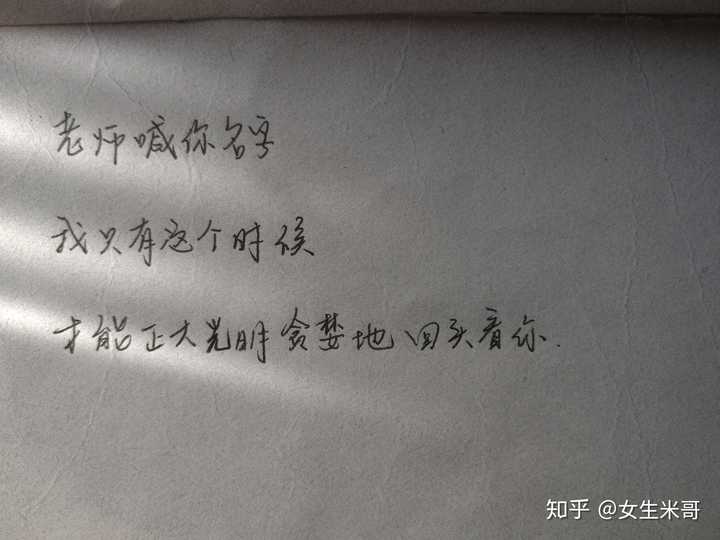 老师喊你名字
我只有这个时候
才能正大光明贪婪地回头看你.
知乎 @女生米哥